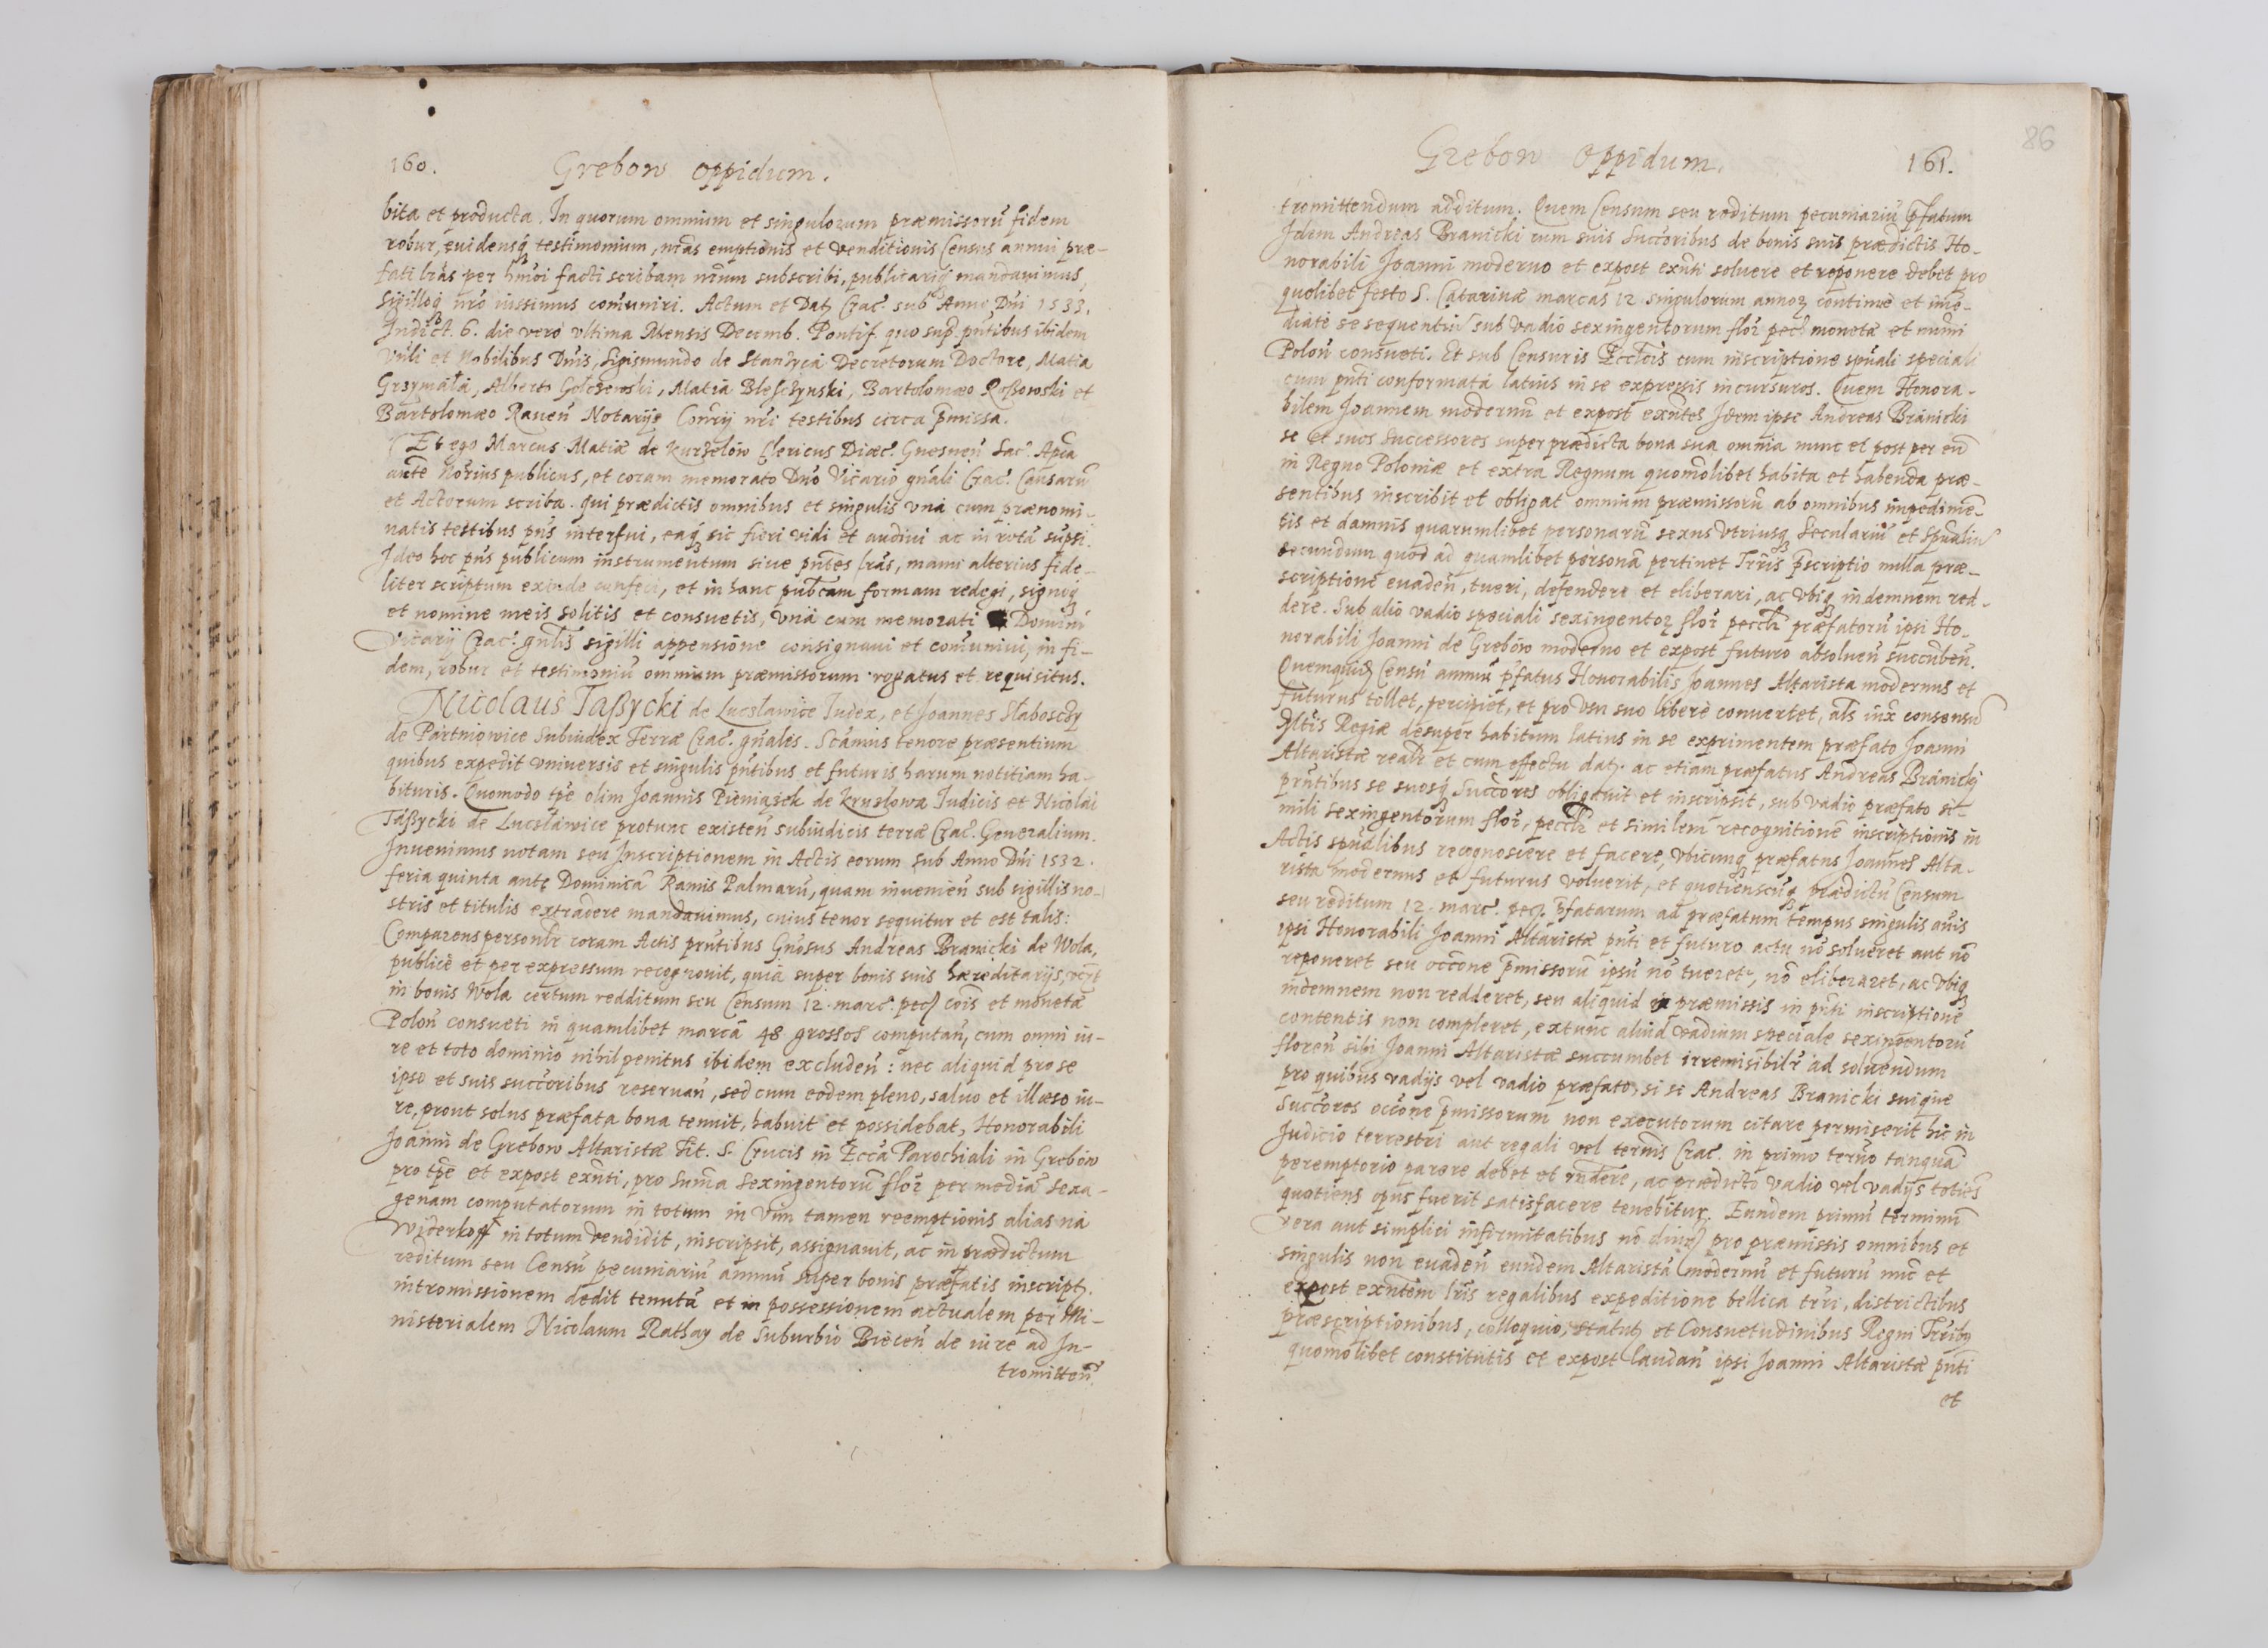 160. Grebow oppidum.
bita et producta. In quorum omnium et singulorum præmissorũ fidem
robur, euidensq́ testimonium, nr̃as emptionis et venditionis Census annui præ-
fati lr̃as per hm̃oi facti scribam nr̃um subscribi, publicariq́ mandauimus,
Sigilloq́ nrõ iussimus com̃uniri. Actum et Dat Crac. sub Anno Dñi 1533.
Indict. 6. die vero vltima Mensis Decemb. Pontif. quo sup̃ pñtibus ibidem
Vñli et Nobilibus Dñis, Sigismundo de Stanzyca Decretorum Doctore, Matia
Grzymała, Alberto Golczewski, Matia Bleszczynski, Bartolomæo Roßowski et
Bartolomæo Raueñ Notarijs Consrij nr̃i testibus circa p̃missa.
Et ego Marcus Matiæ de Kurzelow Clericus Diæc. Gnesneñ Sac. Apĩa
aũte Notrius publicus, et coram memorato Dnõ Vicario gñali Crac. Causarũ
et Actorum scriba. qui prædictis omnibus et singulis vnà cum prænomi-
natis testibus pñs interfui, eaq́ sic fieri vidi et audiui ac in notã sũpsi.
Ideo hoc pñs publicum instrumentum siue pñtes lr̃as, manu alterius fide-
liter scriptum exinde confeci, et in hanc pub̃cam formam redegi, signoq́
et nomine meis solitis et consuetis, vnà cum memorati Domini
Vicarij Crac. gñlis sigilli appensione consignaui et com̃uniui, in fi-
dem, robur et testimoniũ omnium præmissorum rogatus et requisitus.
Nicolaus Taßycki de Lucslawice Iudex, et Joannes Słabosczy
de Partniowice Subiudex Terræ Crac. gñales. Scimus tenore præsentium
quibus expedit vniuersis et singulis pñtibus et futuris harum notitiam ha-
bituris. Quomodo tp̃e olim Joannis Pieniążek de Kruzlowa Iudicis et Nicolai
Taßycki de Lucslawice protunc existeñ subiudicis terræ Crac. Generalium.
Inuenimus notam seu Inscriptionem in Actis eorum sub Anno Dñi 1532.
feria quinta antę Dominicã Ramis Palmarũ, quam inuenieñ sub sigillis no-
stris et titulis extradere mandauimus, cuius tenor sequitur et est talis:
Comparens personlr̃ coram Actis pñtibus Gñosus Andreas Branicki de Wola,
publicè et per expressum recognouit, quia super bonis suis hæreditarijs, vz
in bonis Wola certum redditum seu Censum 12. marc. pec cõis et monetæ
Poloñ consueti in quamlibet marcã 48 grossos computañ, cum omni iu-
re et toto dominio nihil penitus ibidem excludeñ: nec aliquid pro se
ipso et suis succõribus reseruañ, sed cum eodem pleno, saluo et illæso iu-
re, prout solus præfata bona tenuit, habuit et possidebat, Honorabili
Joanni de Grebow Altaristæ Tit. S. Crucis in Ecc̃a Parochiali in Grebow
pro tp̃e et expost exñti, pro Sum̃a Sexingentorũ flor̃ per mediã sexa-
genam computatorum in totum in vim tamen reemptionis alias na
Widerkoff in totum vendidit, inscripsit, assignauit, ac in prædictum
reditum seu Censũ pecuniariũ annuũ super bonis præfatis inscript.
intromissionem dedit tenutã et in possessionem actualem per Mi-
nisterialem Nicolaum Rathay de Suburbio Bieceñ de iure ad In-
tromitteñ
Grebow Oppidum. 161.
86
tromittendum additum. Quem Censum seu reditum pecuniariũ p̃fatum
Idem Andreas Branicki cum suis Succõribus de bonis suis prædictis Ho-
norabili Joanni moderno et expost exñti soluere et reponere debet pro
quolibet festo S. Catarinæ marcas 12 singulorum annoꝝ continuè et im̃e-
diatè se sequentiũ sub vadio sexingentorum flor̃ pec monetæ et num̃i
Poloñ consueti. Et sub Censuris Eccl̃cis cum inscriptione spũali speciali
cum pñti conformata latius in se expressis incursuros. Quem Honora-
bilem Joannem modernũ et expost exñtes Idem ipse Andreas Branicki
se et suos Successores super prædicta bona sua omnia nunc et post per eũ
in Regno Poloniæ et extra Regnum quomolibet habita et habenda præ-
sentibus inscribit et obligat omnium præmissorũ ab omnibus impedimẽ-
tis et damnis quarumlibet personarũ sexus vtriusq́ Seculariũ et Spũaliũ
secundum quod ad quamlibet personã pertinet Trr̃is p̃scriptio nulla præ-
scriptione euadeñ, tueri, defendere et eliberari, ac vbiq́ indemnem red-
dere. Sub alio vadio speciali sexingentoꝝ flor̃ pecclr̃ præfatorũ ipsi Ho-
norabili Joanni de Grebow moderno et expost futuro absolueñ succũbeñ.
Quemquid Censũ annuũ p̃fatus Honorabilis Joannes Altarista modernus et
futurus tollet, percipiet, et pro vsu suo liberè conuertet, als̃ iux̃ consensũ
Mltis Regiæ desuper habitum latius in se exprimentem præfato Joanni
Altaristæ realr̃ et cum effectu dat. ac etiam præfatus Andreas Branicki
prñtibus se suosq́ Succõres obligauit et inscripsit, sub vadio præfato si-
mili sexingentorum flor, pecclr̃ et similem recognitionẽ inscriptionis in
Actis spũalibus recognoscere et facere, vbicunq́ præfatus Joannes Alta-
rista modernus et futurus voluerit, et quotienscũq́ prædictũ Censum
seu reditum 12. marc. pec. p̃fatarum ad præfatum tempus singulis anĩs
ipsi Honorabili Joanni Altaristæ pñti et futuro actu nõ solueret aut nõ
reponeret seu occõne p̃missorũ ipsũ nõ tueret, nõ eliberaret, ac vbiq́
indemnem non redderet, seu aliquid in præmissis in pñti inscriptione
contentis non compleret, extunc aliud vadium speciale sexingentorũ
floreñ sibi Joanni Altaristæ succumbet irremisibilr̃ ad soluendum
pro quibus vadijs vel vadio præfato, si se Andreas Branicki suique
Succõres occõne p̃missorum non executorum citare permiserit hic in
Judicio terrestri aut regali vel termis Crac. in primo terño tanquã
peremptorio parere debet et rñdere, ac prædicto vadio vel vadijs totiẽs
quotiens opus fuerit satisfacere tenebitur. Eundem primũ terminũ
vera aut simplici infirmitatibus nõ dinr̃ pro præmissis omnibus et
singulis non euadeñ eundem Altaristã modernũ et futurũ nũc et
expost exñtem lr̃is regalibus expeditione bellica tr̃ri, districtibus
præscriptionibus, colloquio, statut et Consuetudinibus Regni Trr̃ibꝰ
quomolibet constitutis et expost laudañ ipsi Joanni Altaristæ pñti
et